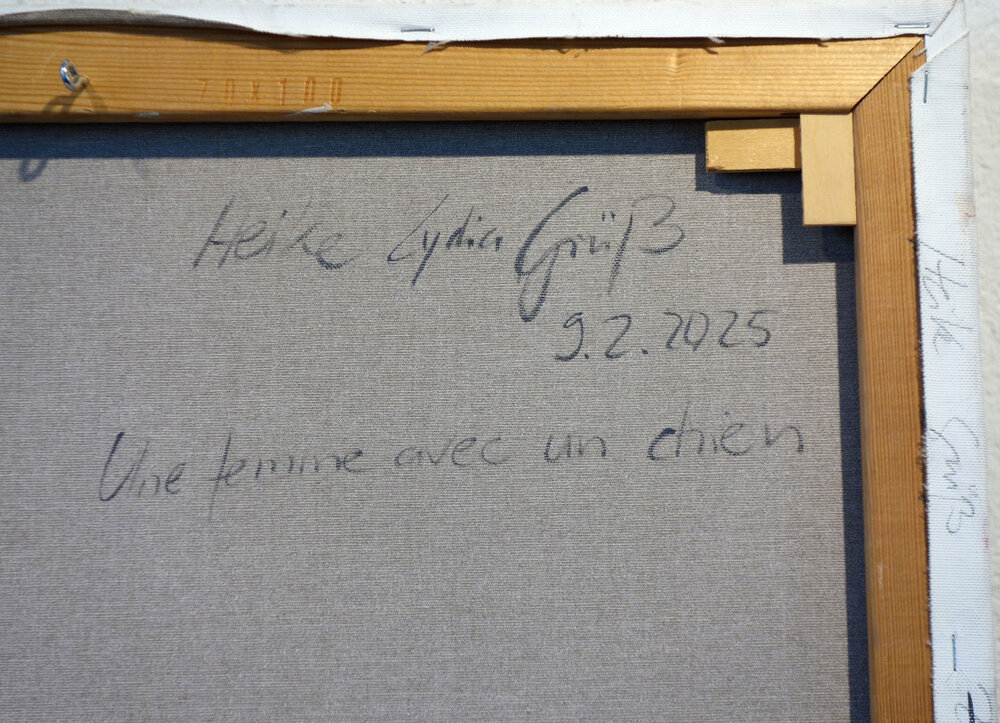 70 x 100
Heike Lydia Grüß
9.2.2025
Une femme avec un chien
Heike Grüß